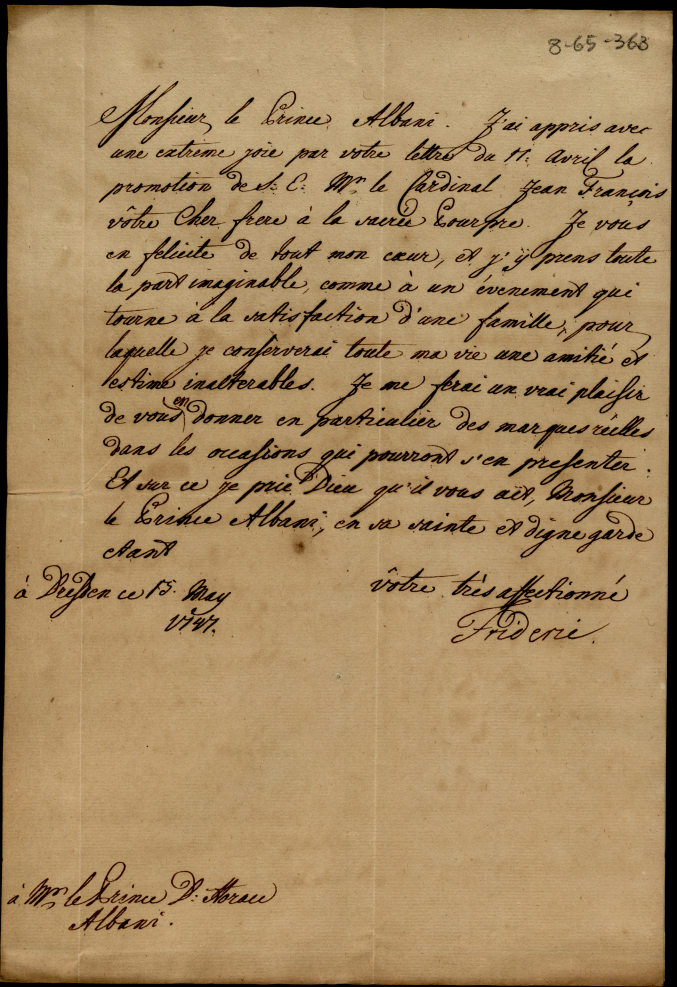 8-65-363
Monsieur le Prince Albani. J'ai appris avec
une extrème joie par vôtre lettre du 11. Avril la
promotion de S. E. Mr. le Cardinal Jean François
vôtre Cher frere à la sacrée Pourpre. Je vous
en felicite de tout mon cœur, et j'ÿ prens toute
la part imaginable, comme à un évenement qui
tourne à la satisfaction d'une famille, pour
laquelle je conserverai toute ma vie une amitié et
estime inalterables. Je me ferai un vrai plaisir
de vous en donner en particulier des marques réelles
dans les occasions qui pourront s'en presenter.
Et sur ce je prie Dieu qu'il vous ait, Monsieur
le Prince Albani, en sa sainte et digne garde
etant
vôtre très affectionné
à Dresden ce 15. May
1747.
Frideric.
à Mr. le Prince D: Horace
Albani.